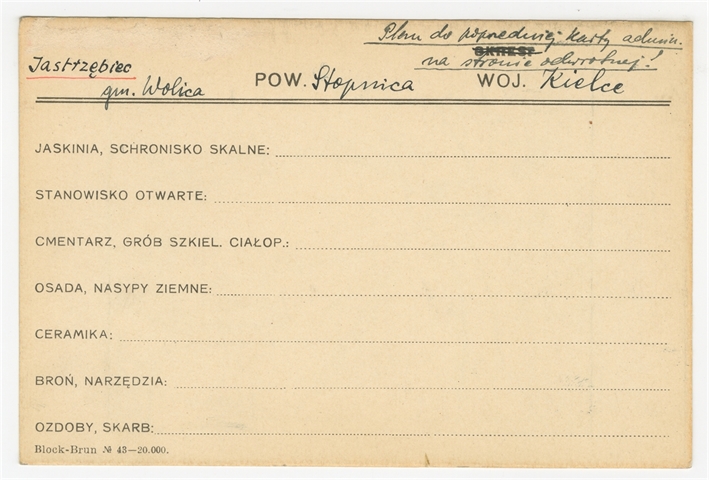 Plan do poprzedniej karty admin.
OKRES:
na stronie odwrotnej!
Jastrzębiec
gm. Wolica
POW. Stopnica
WOJ. Kielce
JASKINIA, SCHRONISKO SKALNE:
STANOWISKO OTWARTE:
CMENTARZ, GRÓB SZKIEL. CIAŁOP.:
OSADA, NASYPY ZIEMNE:
CERAMIKA:
BROŃ, NARZĘDZIA:
OZDOBY, SKARB:
Block-Brun № 43—20.000.